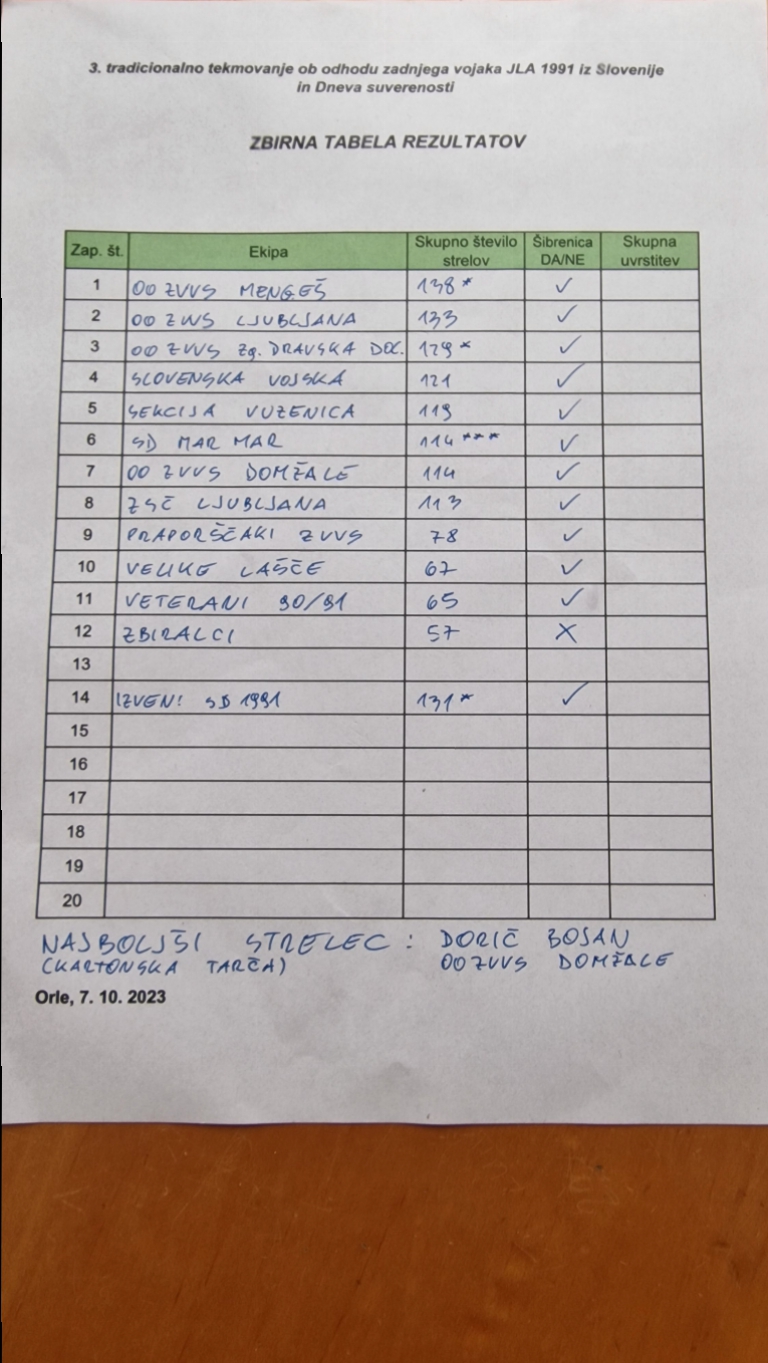 3. tradicionalno tekmovanje ob odhodu zadnjega vojaka JLA 1991 iz Slovenije
in Dneva suverenosti
ZBIRNA TABELA REZULTATOV
Zap. št. Ekipa Skupno število strelov Šibrenica DA/NE Skupna uvrstitev
1 OO ZVVS MENGEŠ 138* ✓
2 OO ZVVS LJUBLJANA 133 ✓
3 OO ZVVS Zg. DRAVSKA DOL. 129* ✓
4 SLOVENSKA VOJSKA 121 ✓
5 SEKCIJA VUZENICA 119 ✓
6 SD MAR MAR 114*** ✓
7 OO ZVVS DOMŽALE 114 ✓
8 ZSČ LJUBLJANA 113 ✓
9 PRAPORŠČAKI ZVVS 78 ✓
10 VELIKE LAŠČE 67 ✓
11 VETERANI 90/91 65 ✓
12 ZBIRALCI 57 X
13
14 IZVEN: SD 1991 131* ✓
15
16
17
18
19
20
NAJBOLJŠI STRELEC : DORIČ BOJAN
(KARTONSKA TARČA) OO ZVVS DOMŽALE
Orle, 7. 10. 2023